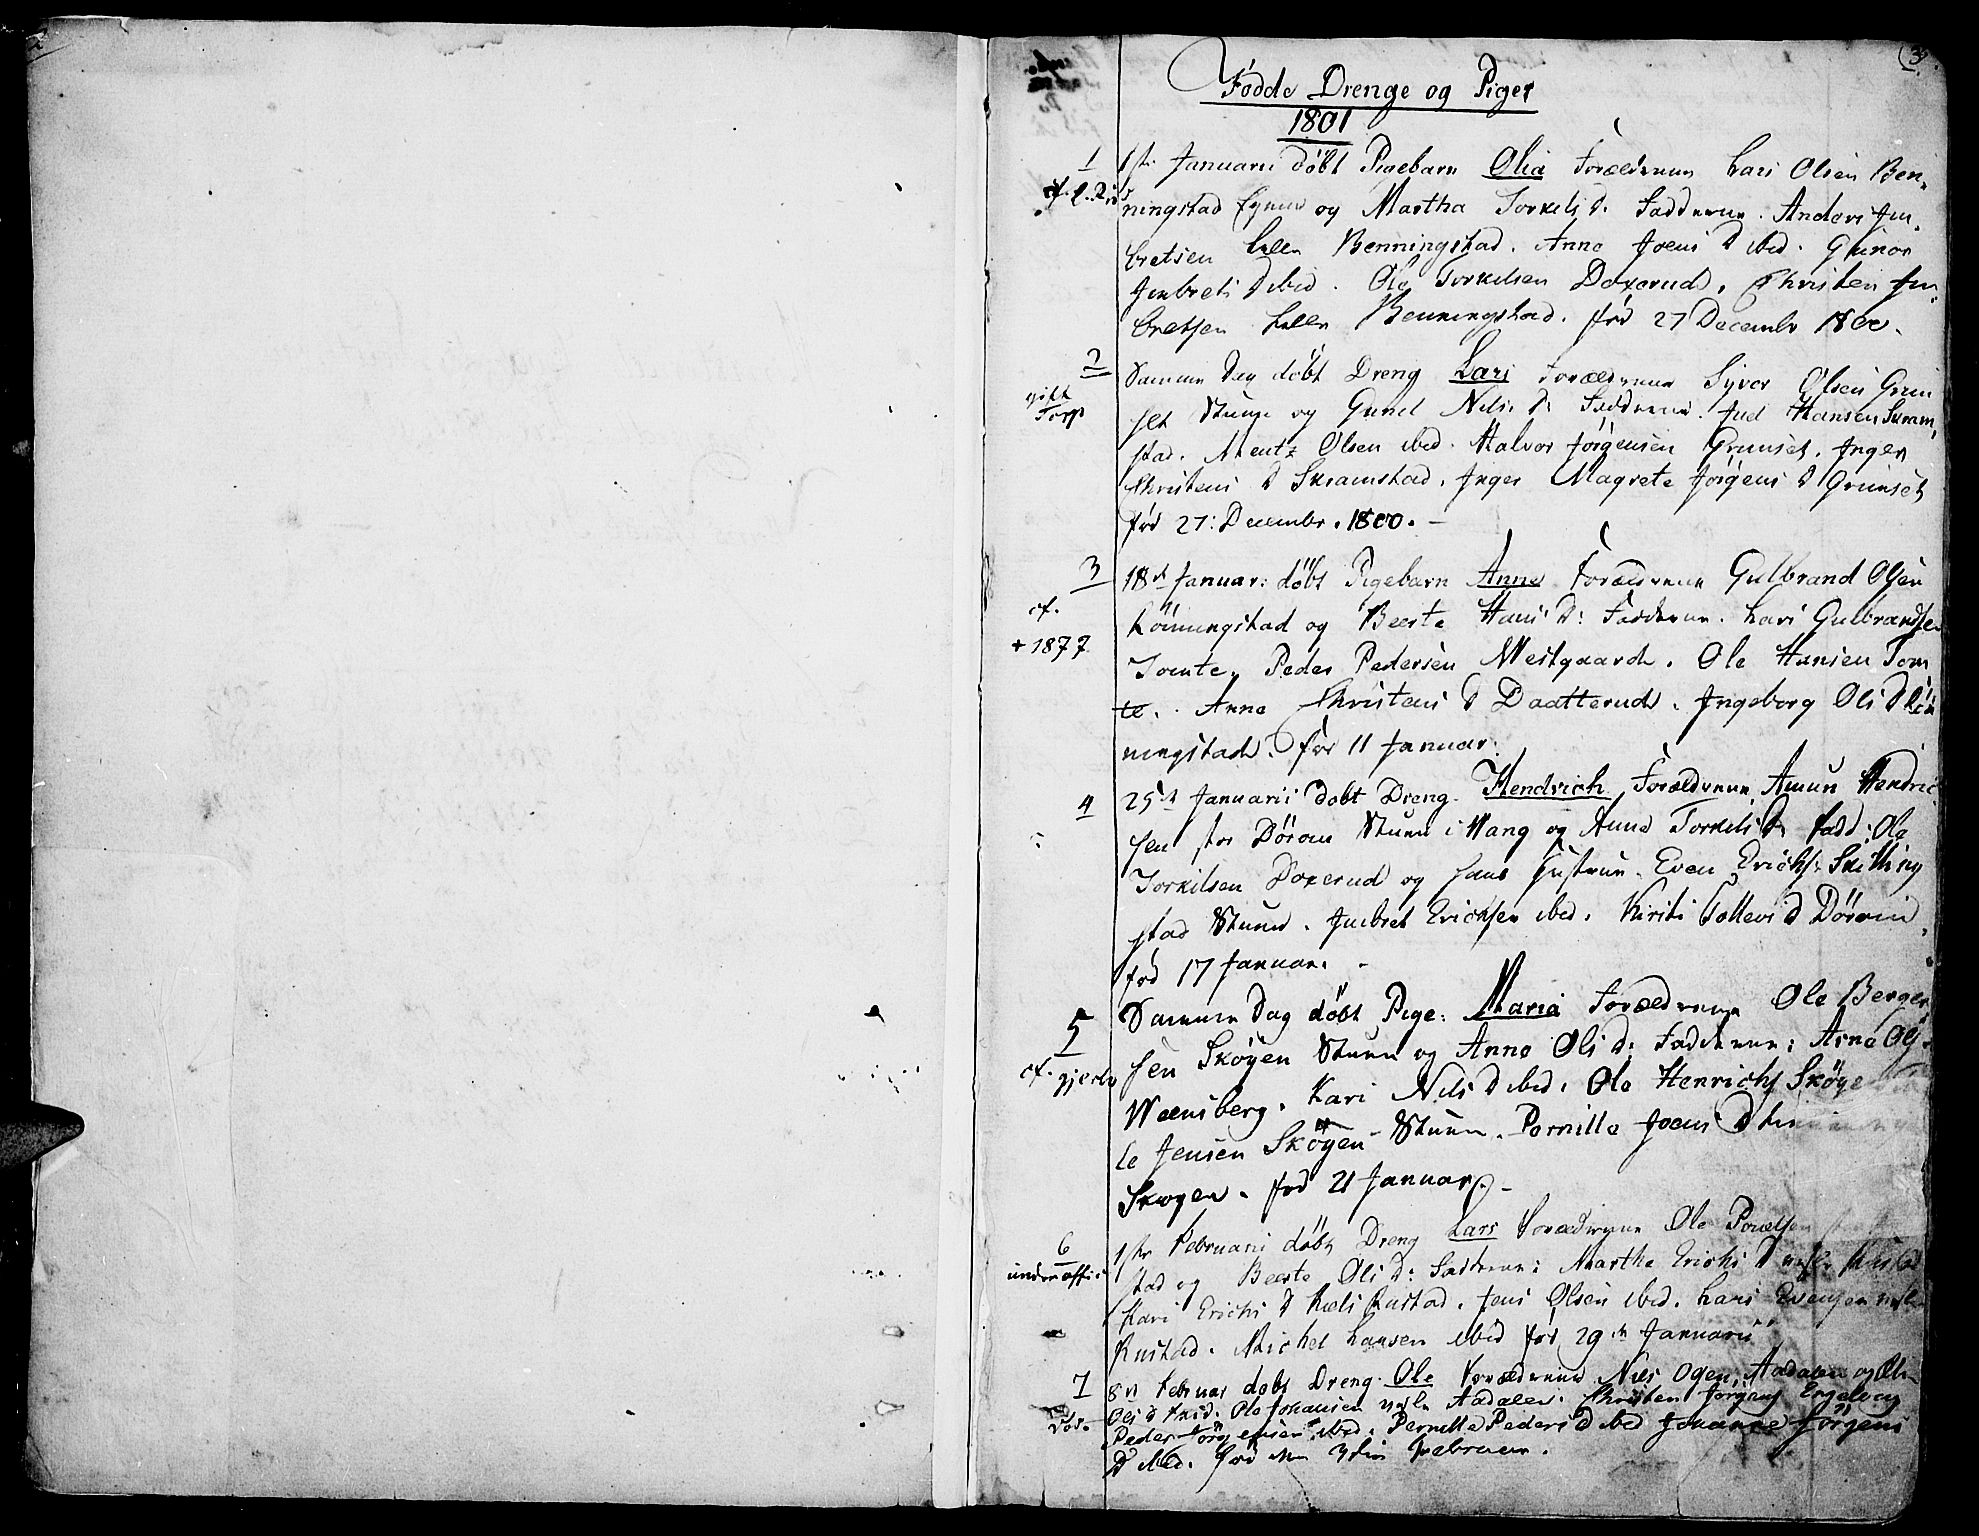 3.
Fødde Drenge og Piger
1801
1
1ste Januarii døbt Pigebarn Olia Forældrene Lars Olsen Ben-
ningstad Eyner og Martha Torkels D. Fadderne. Anders Jm-
bretsen Lille Benningstad. Anne Joens D ibid. Gunor
Jmbrets D ibid. Ole Torkelsen Doxerud. Christen Jm-
bretsen Lille Benningstad. fød 27 Decembr 1800.
2
gift
Torp
Samme Dag døbt Dreng Lars Forældrene Syver Olsen Grim
set Stuen og Gunel Nels D: Fadderne. Juel Hansen Skram-
stad. Mentz Olsen ibid. Halvor Jørgensen Grimset. Inger
Christens D Skramstad. Inger Magrete Jørgens D Grimset
fød 27: Decembr. 1800. -
3
cf.
+ 1877.
18de Januar: døbt Pigebarn Anne Forældrene Gulbrand Olsen
Lønningstad og Beerte Hans D: Fadderne. Lars Gulbrandsen
Tomte. Peder Pedersen Westgaard. Ole Hansen Tom
te. Anne Christens D Daatterud. Ingeborg Ols D Løn
ningstad. før 11 Januar.
4
25de Januarii døbt Dreng. Hendrich Forældrene Amun Hendric
sen stor Døren Stuen i Wang og Anne Torkels D. Fadd: Ole
Torkilsen Doxerud og hans Hustrue. Even Erichs: Skilling
stad Stuen. Jmbret Erichsen ibid. Kirsti Tollevs D Døren
fød 17 Januar. -
5
cf. gjerdr
Samme Dag døbt Pige: Maria Forældrene Ole Berger
sen Skøyen Stuen og Anne Ols D: Fadderne: Arne Ols.
Weensberg. Kari Nels D ibid. Ole Henrichs Skøye
le Jensen Skøyen Stuen. Pernille Joens D
Skøyen. fød 21 Januar. -
6
underoffic
1ste Februarii døbt Dreng Lars Forældrene Ole Povelsen
stad og Beerte Ols D: Fadderne: Martha Erichs D Rustad
Kari Erichs D Rustad. Jens Olsen ibid. Lars Evensen
Rustad. Michel Larsen ibid fød 29de Januarii
7
død.
8de Februar døbt Dreng. Ole Forældrene Nils Olsen Aadalen og
Ols D ibid. Ole Johansen Aadalen. Christen Jørgens Engelaug
Peder Jørgensen ibid. Pernille Peders D ibid Johanne Jørgens
D ibid. fød den 3die Februar.